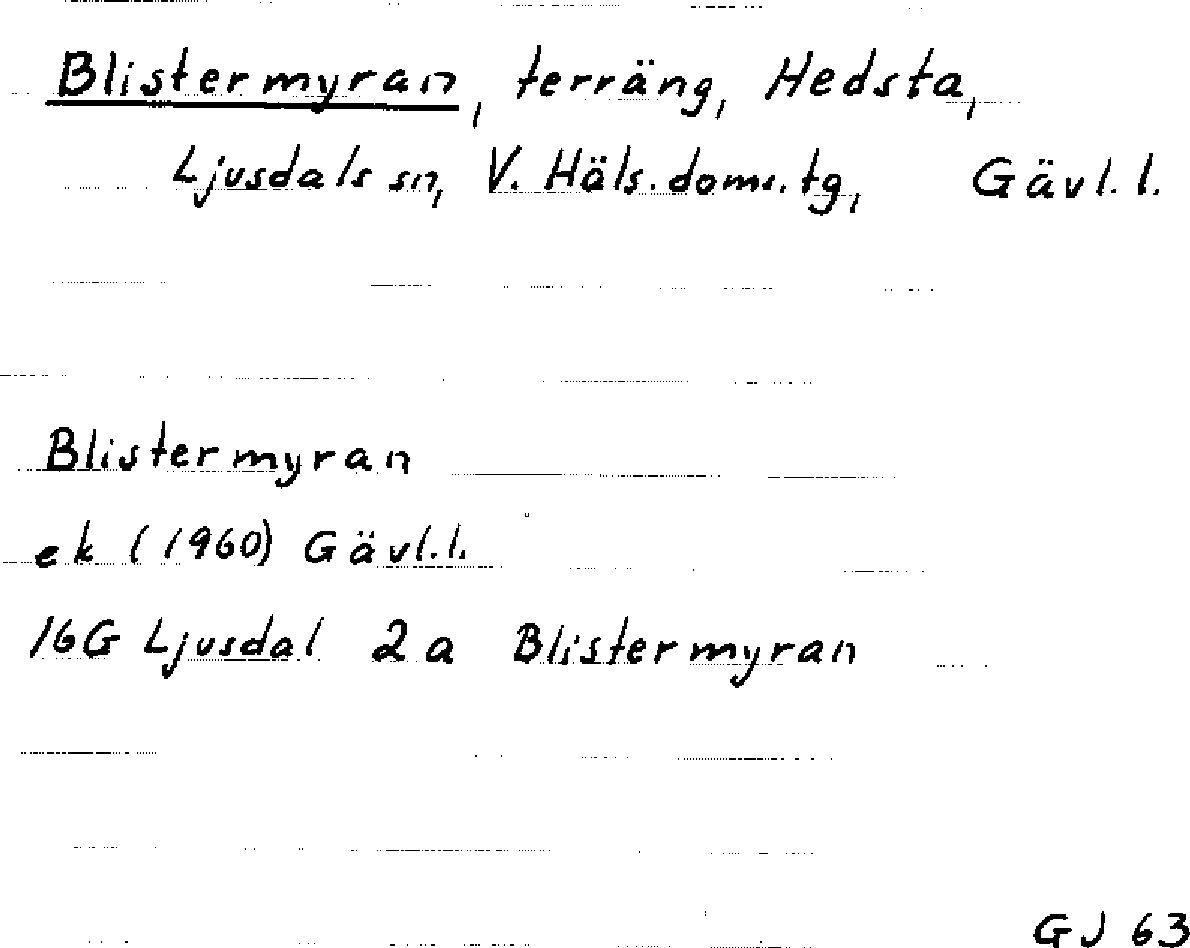 Blistermyran, terräng, Hedsta,
Ljusdals sn, V. Häls. doms. tg, Gävl. l.
Blistermyran
ek (1960) Gävl. l.
16G Ljusdal 2a Blistermyran
GJ 63